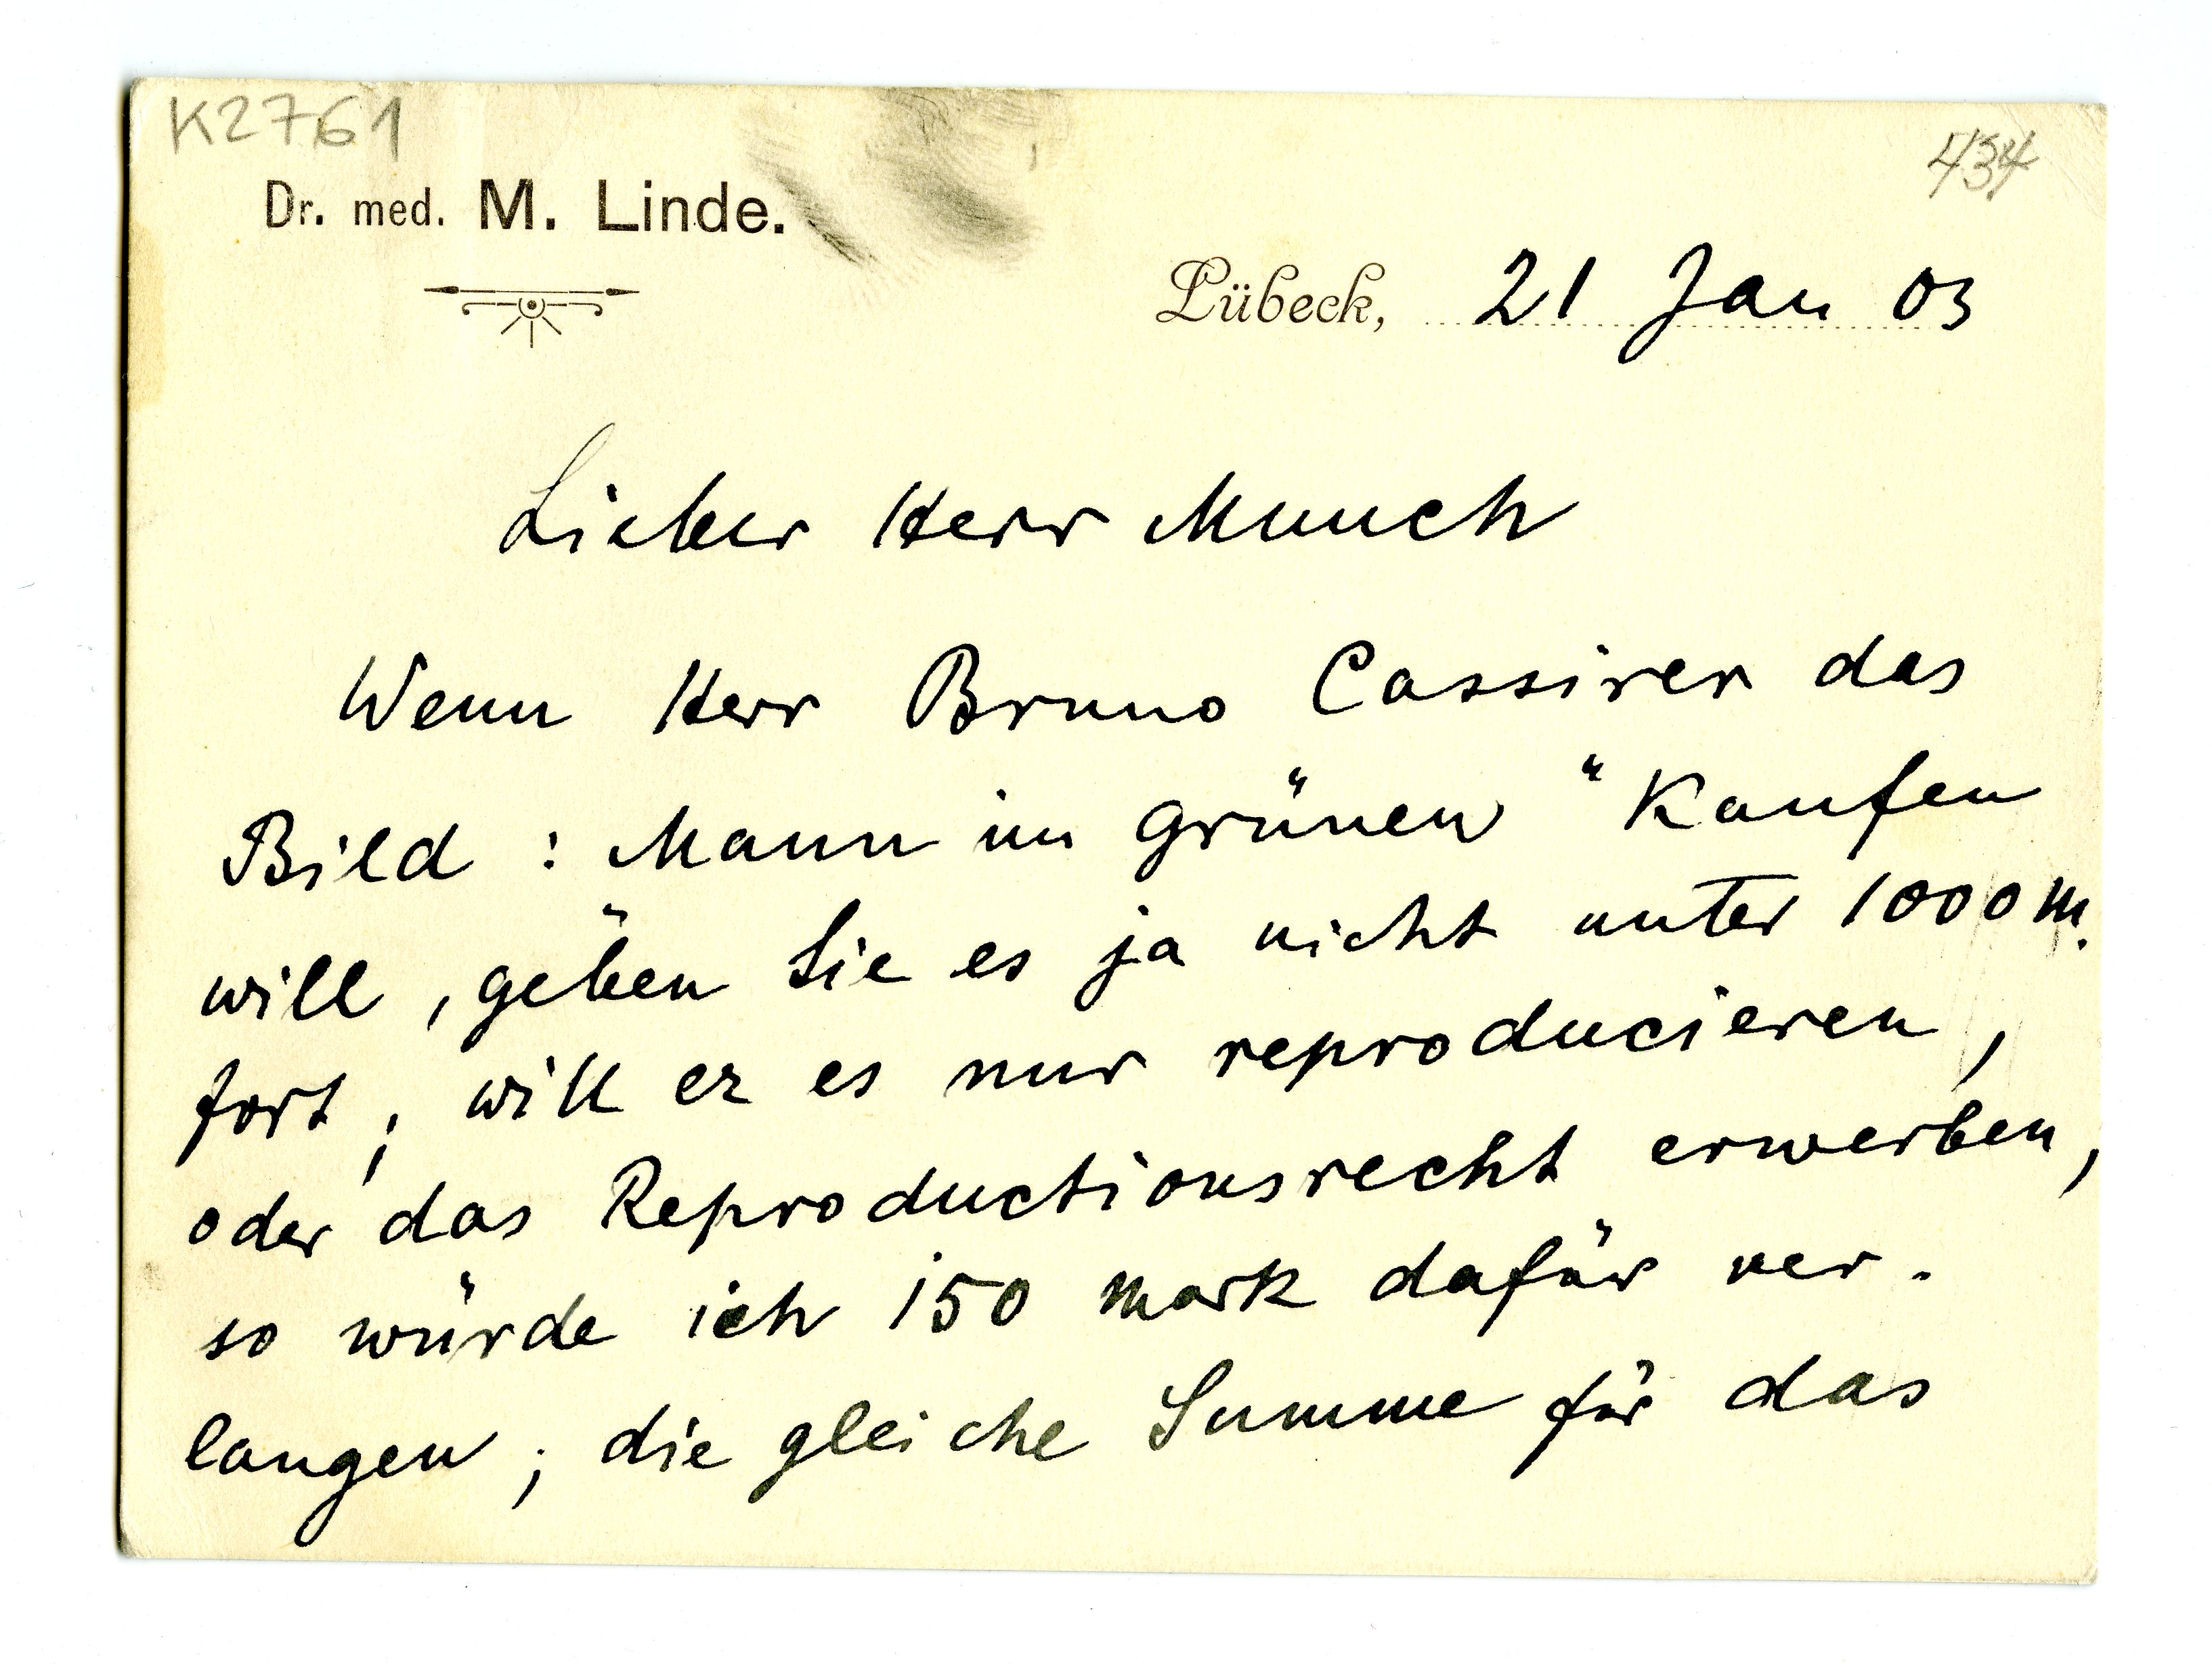 K2761
434
Dr. med. M. Linde.
Lübeck, 21 Jan 03
Lieber Herr Munch
Wenn Herr Bruno Cassirer das
Bild : Mann im Grünen “ Kaufen
will, geben Sie es ja nicht unter 1000 M.
fort; will er es nur reproducieren,
oder das Reproductionsrecht erwerben,
so würde ich 150 Mark dafür ver-
langen; die gleiche Summe für das